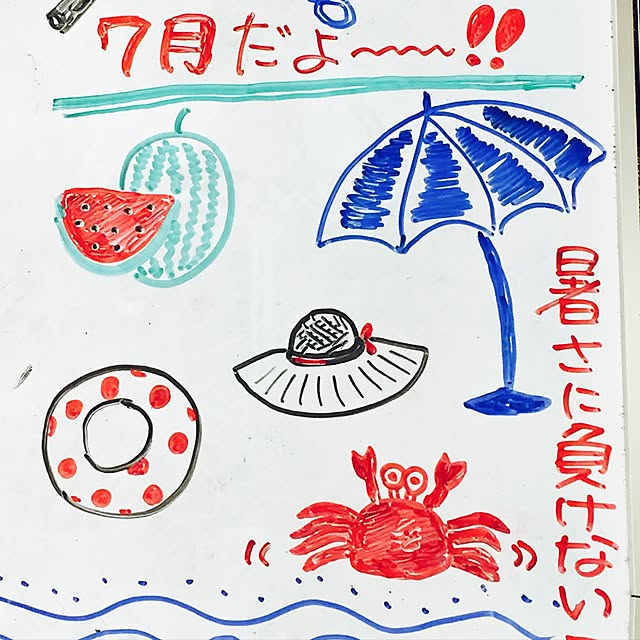 7月だよ〜〜!!
暑さに負けない